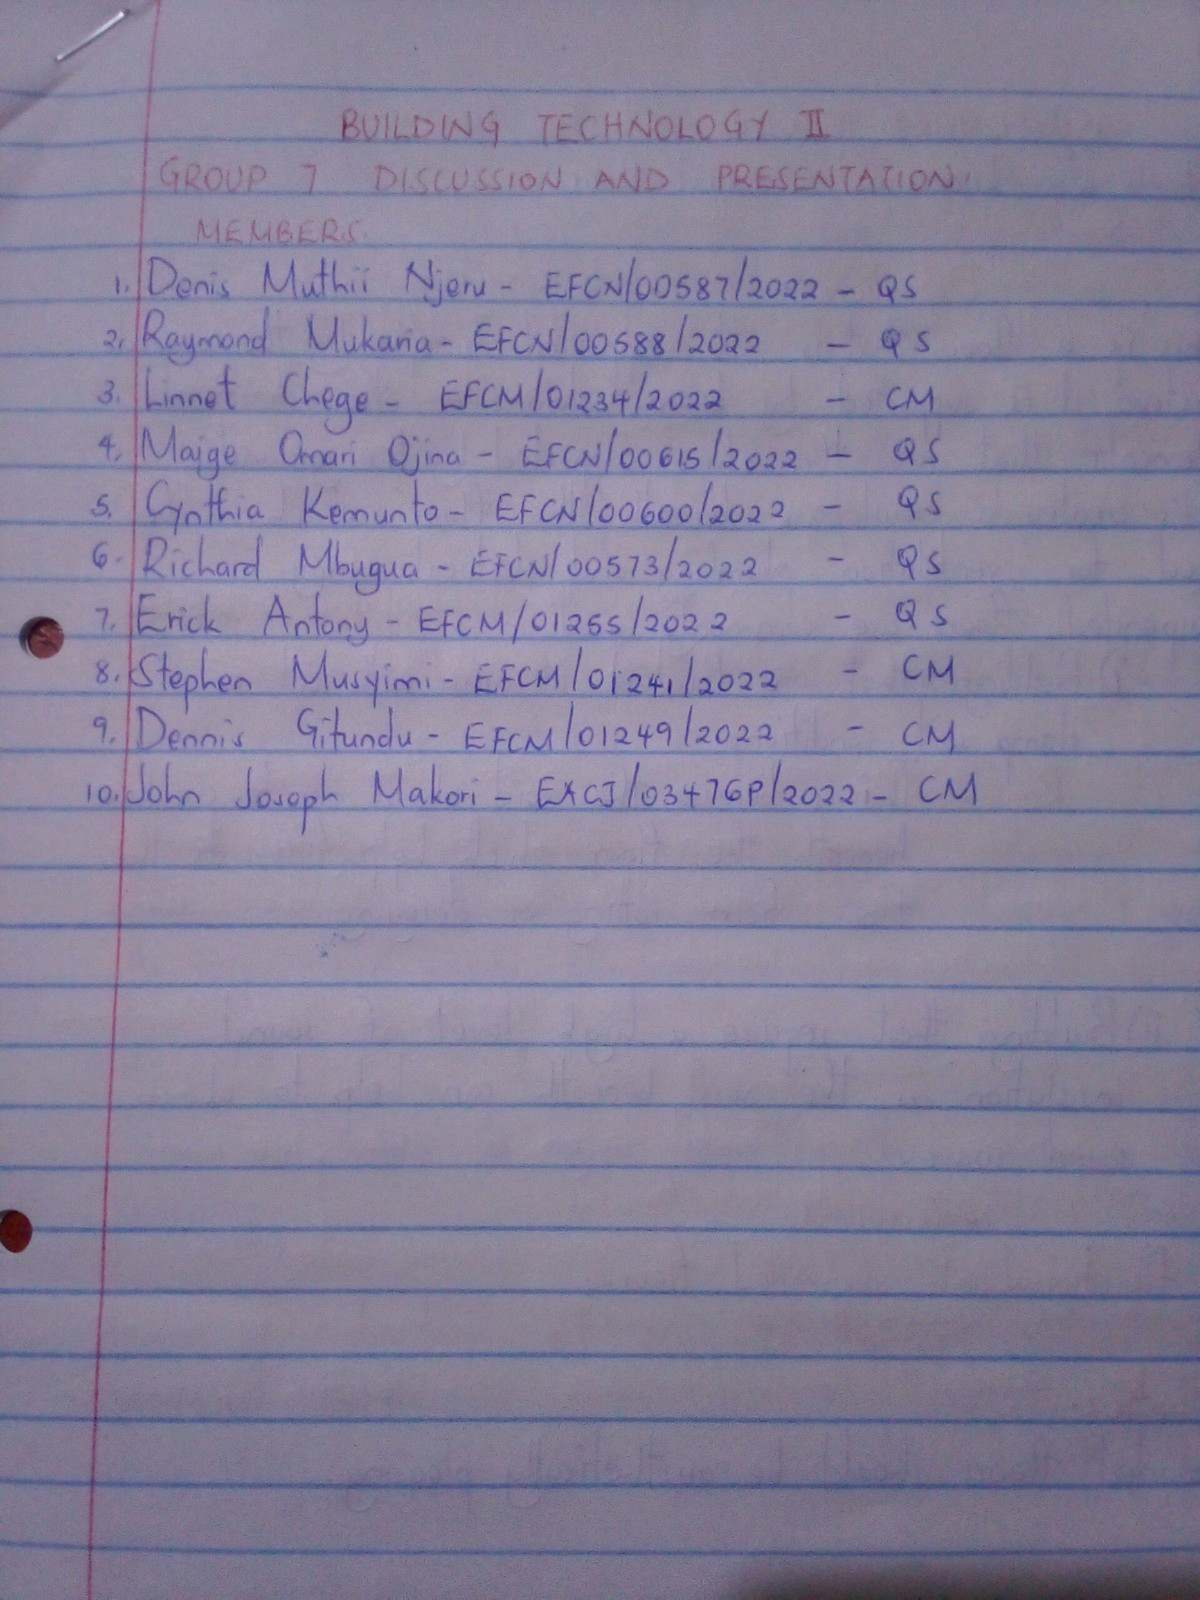 BUILDING TECHNOLOGY II
GROUP 7 DISCUSSION AND PRESENTATION.
MEMBERS.
1. Denis Muthii Njeru - EFCN/00587/2022 - QS
2. Raymond Mukaria - EFCN/00588/2022 - QS
3. Linnet Chege - EFCM/01234/2022 - CM
4. Maige Omari Ojina - EFCN/00615/2022 - QS
5. Cynthia Kemunto - EFCN/00600/2022 - QS
6. Richard Mbugua - EFCN/00573/2022 - QS
7. Erick Antony - EFCM/01255/2022 - QS
8. Stephen Musyimi - EFCM/01241/2022 - CM
9. Dennis Gitundu - EFCM/01249/2022 - CM
10. John Joseph Makori - EXCJ/03476P/2022 - CM